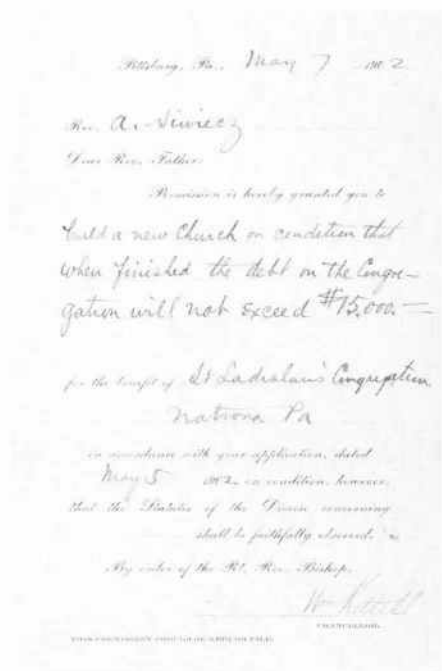 Pittsburg, Pa., May 7 1902
Rev. A. Siwiecz
Dear Rev. Father:
Permission is hereby granted you to
build a new Church on condition that
when finished the debt on the Congre-
gation will not exceed $15,000.—
for the benefit of St Ladislaus Congregation
Natrona Pa
in accordance with your application, dated
May 5 1902 on condition, however,
that the Statutes of the Diocese concerning
shall be faithfully observed.
By order of the Rt. Rev. Bishop.
Wm
CHANCELLOR.